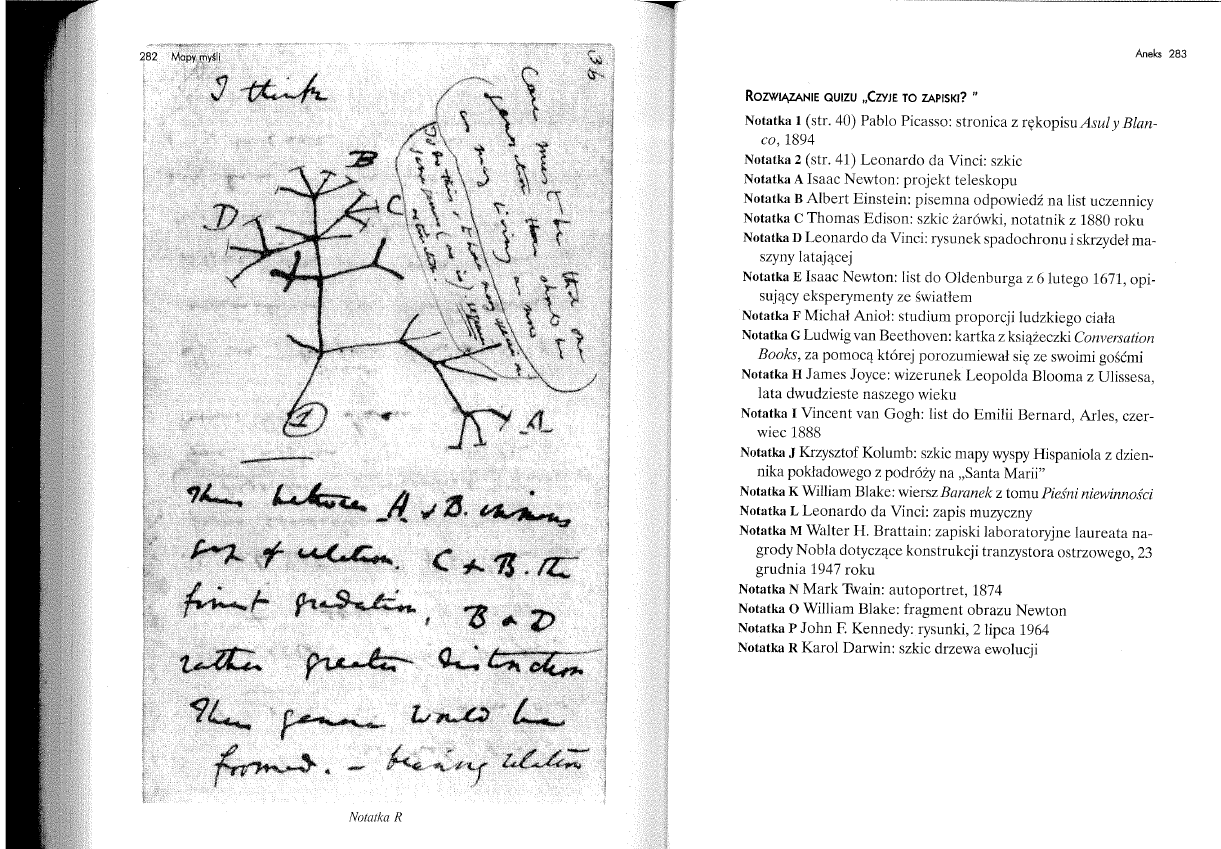 282 Mapy myśli
36
I think
Case must be that one
generation then should be
as many living as now
To do this & to have many species in
same genus (as is) requires
extinction.
B
C
D
1
A
Thus between A & B. immens
gap of relation. C & B. the
finest gradation, B & D
rather greater distinction
Thus genera would be
formed. — bearing relation
Notatka R
Aneks 283
ROZWIĄZANIE QUIZU „CZYJE TO ZAPISKI? ”
Notatka 1 (str. 40) Pablo Picasso: stronica z rękopisu Asul y Blan-
co, 1894
Notatka 2 (str. 41) Leonardo da Vinci: szkic
Notatka A Isaac Newton: projekt teleskopu
Notatka B Albert Einstein: pisemna odpowiedź na list uczennicy
Notatka C Thomas Edison: szkic żarówki, notatnik z 1880 roku
Notatka D Leonardo da Vinci: rysunek spadochronu i skrzydeł ma-
szyny latającej
Notatka E Isaac Newton: list do Oldenburga z 6 lutego 1671, opi-
sujący eksperymenty ze światłem
Notatka F Michał Anioł: studium proporcji ludzkiego ciała
Notatka G Ludwig van Beethoven: kartka z książeczki Conversation
Books, za pomocą której porozumiewał się ze swoimi gośćmi
Notatka H James Joyce: wizerunek Leopolda Blooma z Ulissesa,
lata dwudzieste naszego wieku
Notatka I Vincent van Gogh: list do Emilii Bernard, Arles, czer-
wiec 1888
Notatka J Krzysztof Kolumb: szkic mapy wyspy Hispaniola z dzien-
nika pokładowego z podróży na „Santa Marii”
Notatka K William Blake: wiersz Baranek z tomu Pieśni niewinności
Notatka L Leonardo da Vinci: zapis muzyczny
Notatka M Walter H. Brattain: zapiski laboratoryjne laureata na-
grody Nobla dotyczące konstrukcji tranzystora ostrzowego, 23
grudnia 1947 roku
Notatka N Mark Twain: autoportret, 1874
Notatka O William Blake: fragment obrazu Newton
Notatka P John F. Kennedy: rysunki, 2 lipca 1964
Notatka R Karol Darwin: szkic drzewa ewolucji